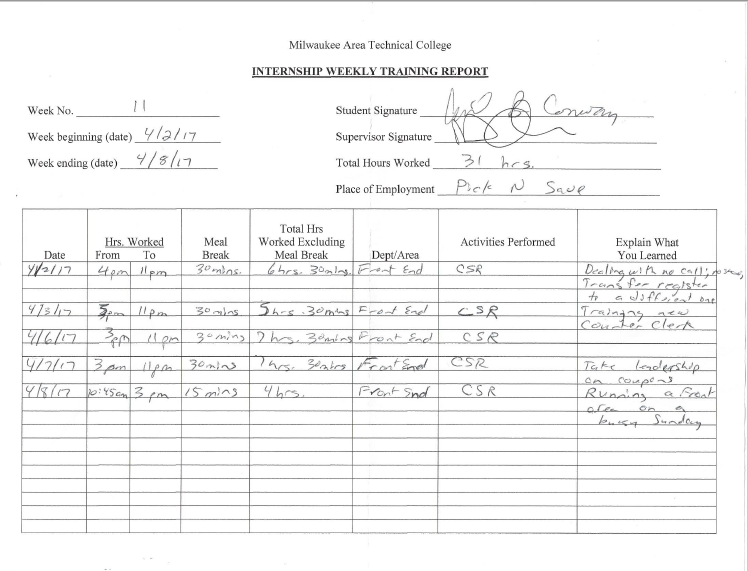 Milwaukee Area Technical College
INTERNSHIP WEEKLY TRAINING REPORT
Week No. 11
Student Signature Conway
Week beginning (date) 4/2/17
Supervisor Signature
Week ending (date) 4/8/17
Total Hours Worked 31 hrs.
Place of Employment Pick N Save
Total Hrs
Hrs. Worked Meal Worked Excluding Activities Performed Explain What
Date From To Break Meal Break Dept/Area You Learned
4/2/17 4pm 11pm 30mins. 6hrs. 30mins. Front End CSR Dealing with no call; no shows,
Transfer register
to a different one
4/3/17 5pm 11pm 30mins 5hrs. 30mins Front End CSR Training new
Counter Clerk
4/6/17 3pm 11pm 30mins 7hrs. 30mins Front End CSR
4/7/17 3pm 11pm 30mins 7hrs. 30mins Front End CSR Take leadership
on coupons
4/8/17 10:45am 3pm 15mins 4hrs. Front End CSR Running a Front
area on a
busy Sunday